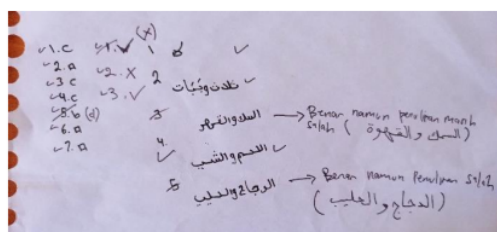 1. C
2. A
3 C
4. C
5. b (d)
6. A
7. A
1. ✓ (x)
2. X
3. ✓
1
2
3 السلد والقهو → Benar namun penulisan masih salah (السمك والقهوة)
4. اللحم والشب
5 الدجاج والحليب → Benar namun penulisan salah (الدجاج والحليب)